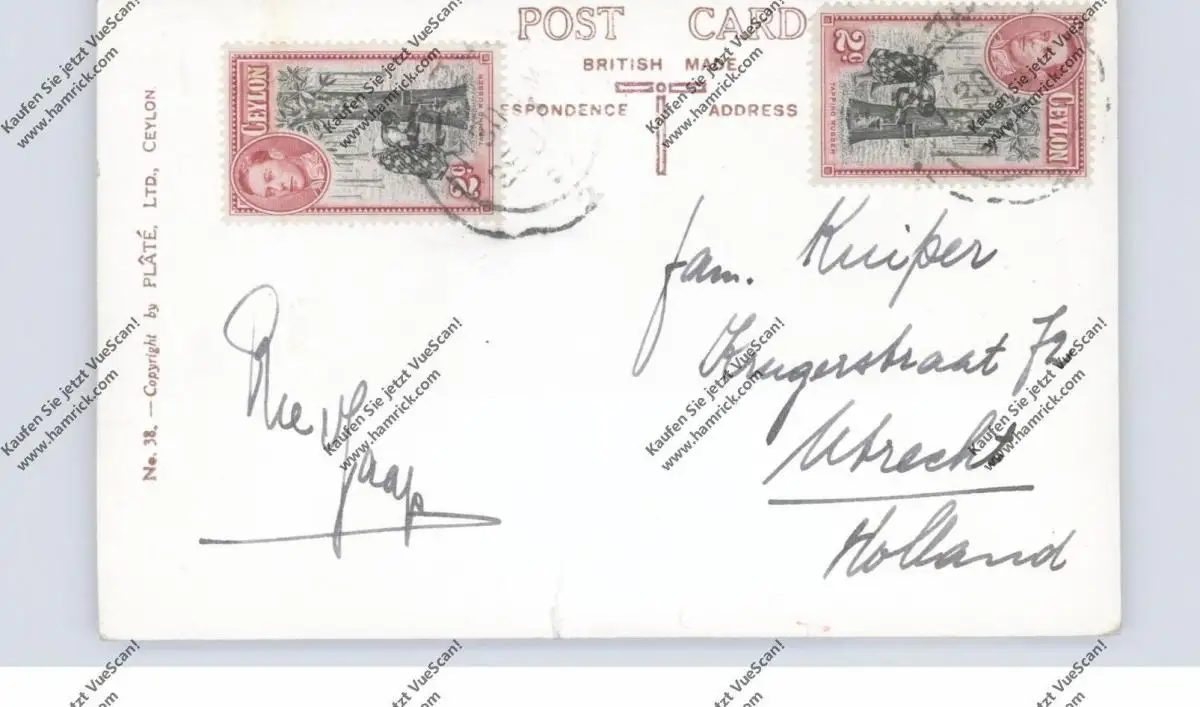 POST CARD
BRITISH MADE
SPONDENCE
ADDRESS
CEYLON
2c
CEYLON
2c
TAPPING RUBBER
No. 38. — Copyright by PLÂTÉ, LTD., CEYLON
fam. Kuiper
Krugerstraat 72
Utrecht
Holland
Jaap
Kaufen Sie jetzt VueScan!
www.hamrick.com